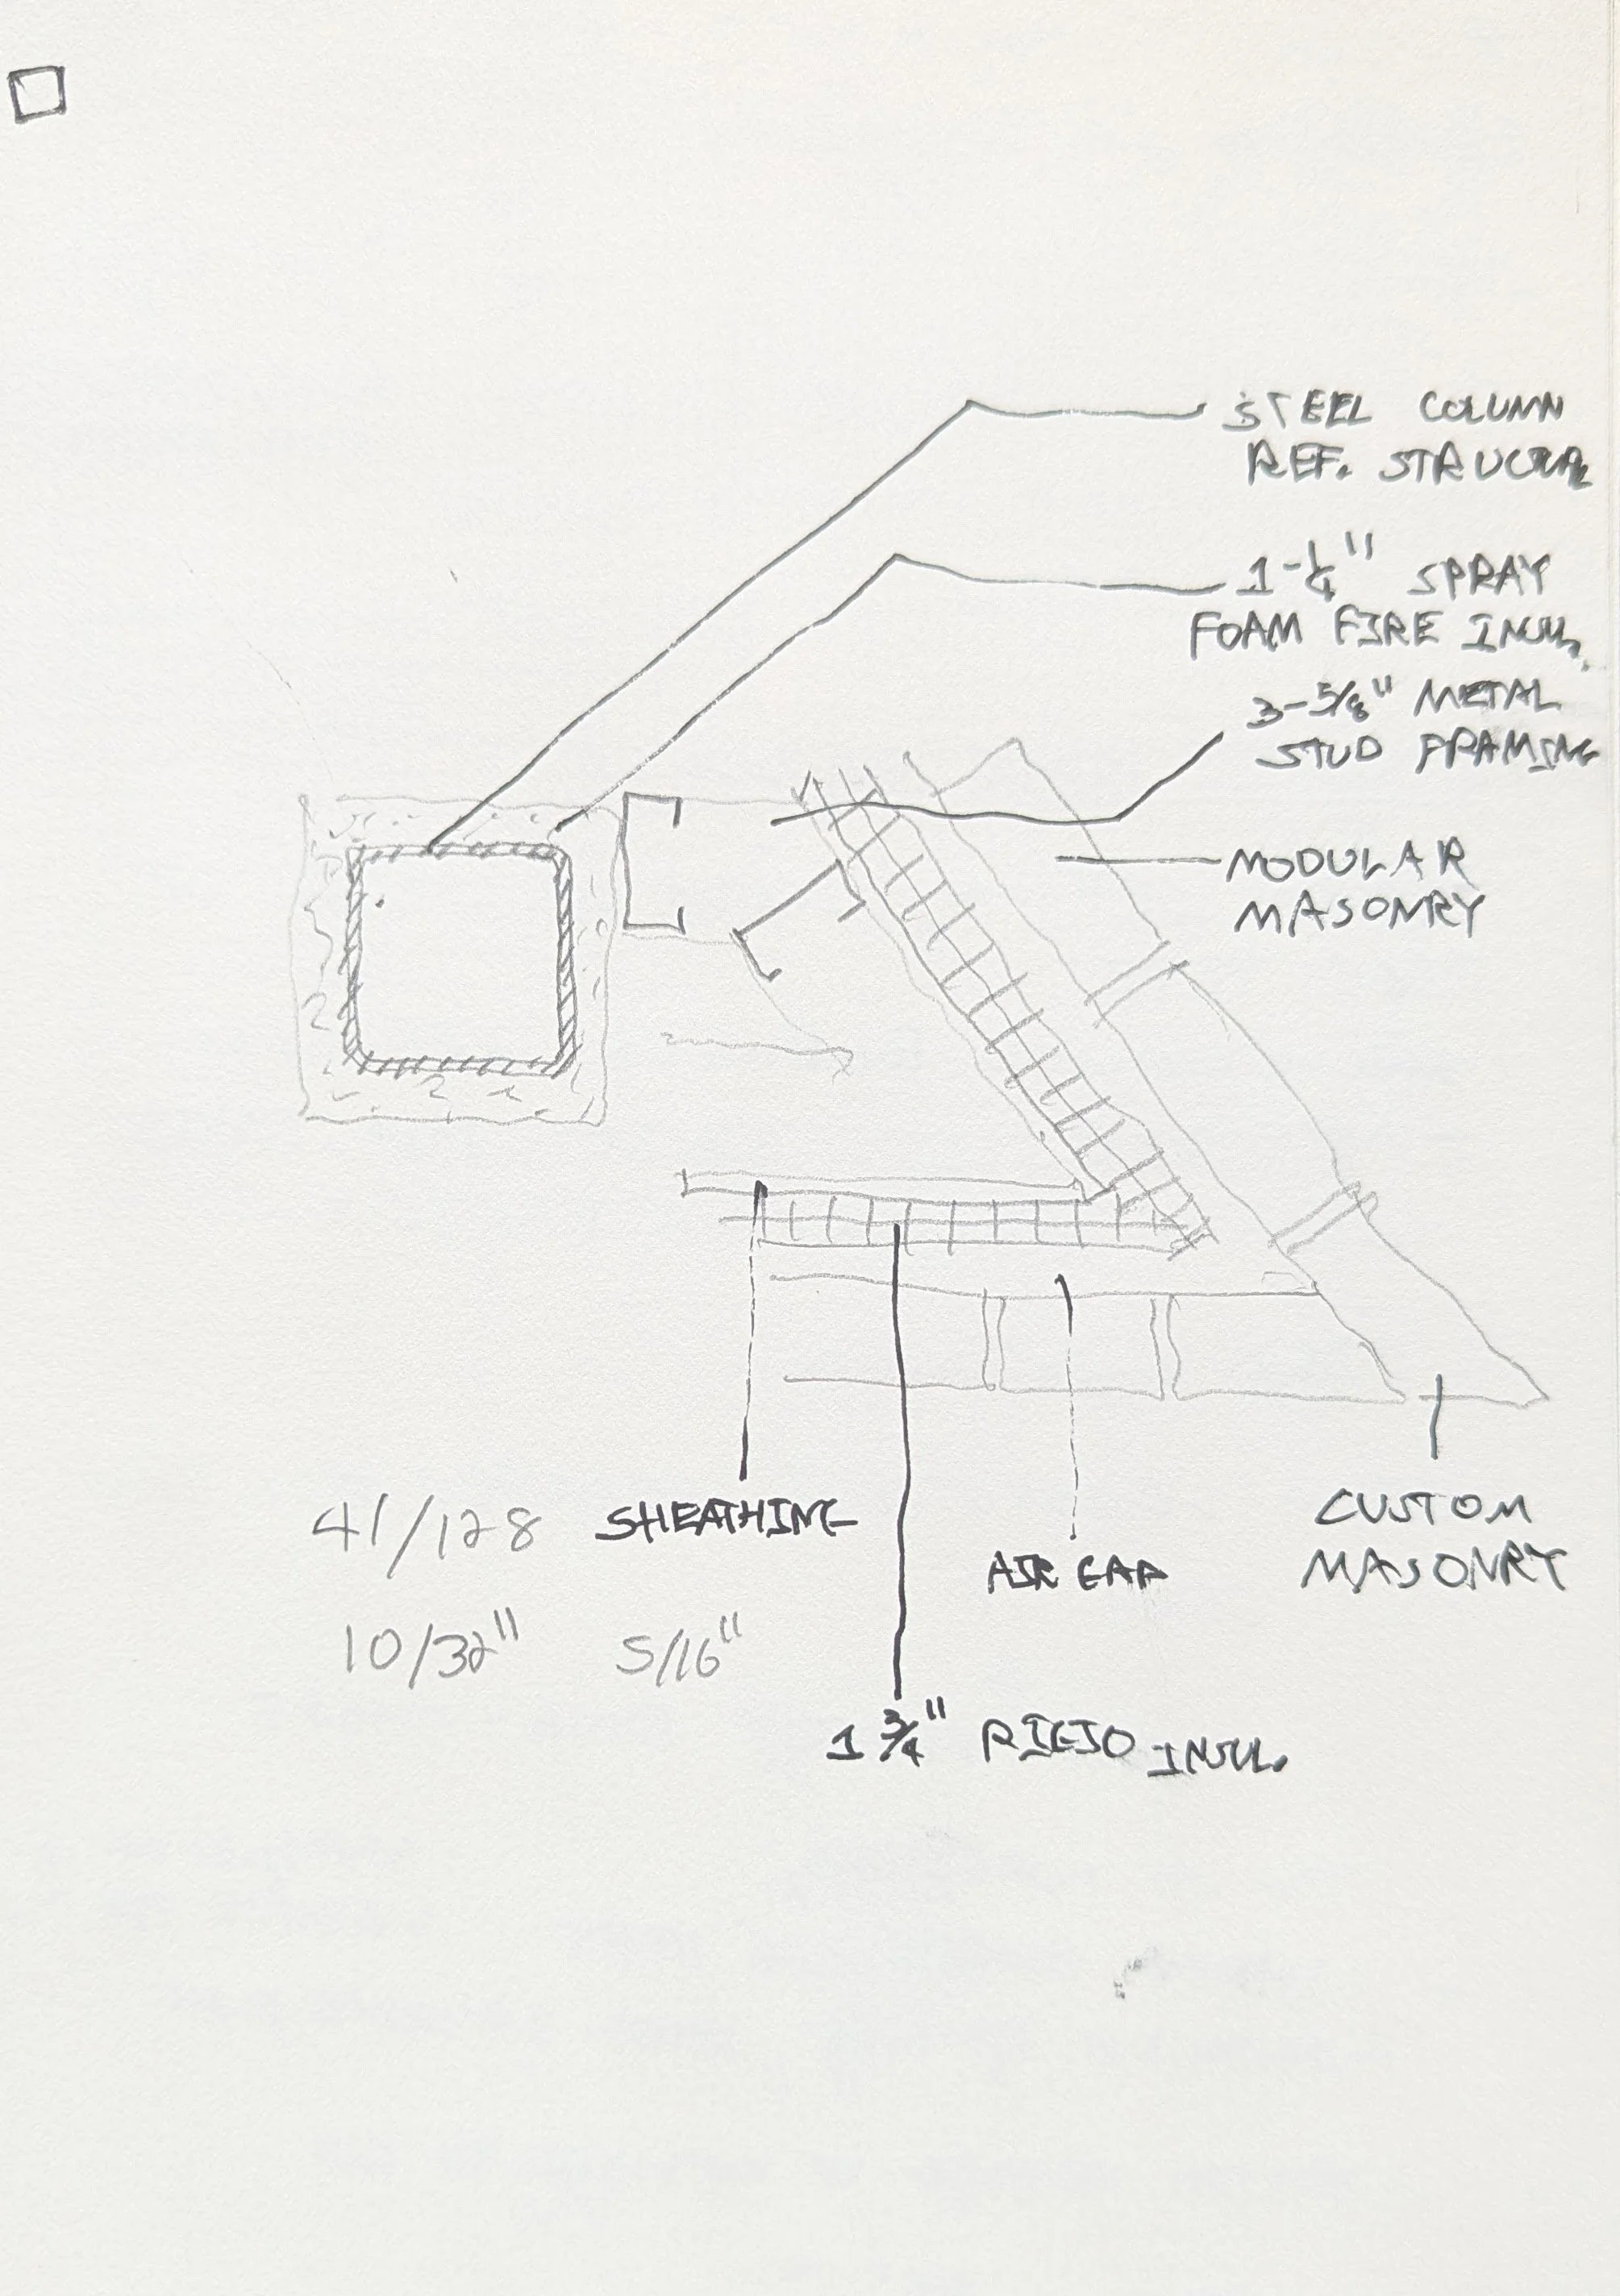 STEEL COLUMN
REF. STRUCTURAL
1-1/4" SPRAY
FOAM FIRE INSUL.
3-5/8" METAL
STUD FRAMING
MODULAR
MASONRY
41/128 SHEATHING
AIR GAP
CUSTOM
MASONRY
10/32" 5/16"
1 3/4" RIGID INSUL.